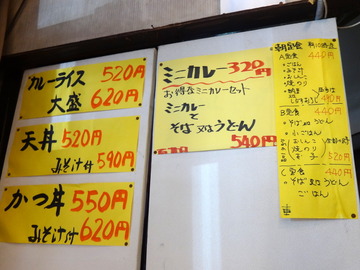 カレーライス 520円
大盛 620円
天丼 520円
みそ汁付 590円
かつ丼 550円
みそ汁付 620円
ミニカレー 320円
お得なミニカレーセット
ミニカレー
と
そば 又は うどん
540円
朝定食
A定食 440円
・ごはん
・みそ汁
・おしんこ
・焼のり
440円
B定食 440円
・そば 又は うどん
・小ごはん
・おしんこ
・焼のり
520円
C定食 440円
・そば 又は うどん
ごはん